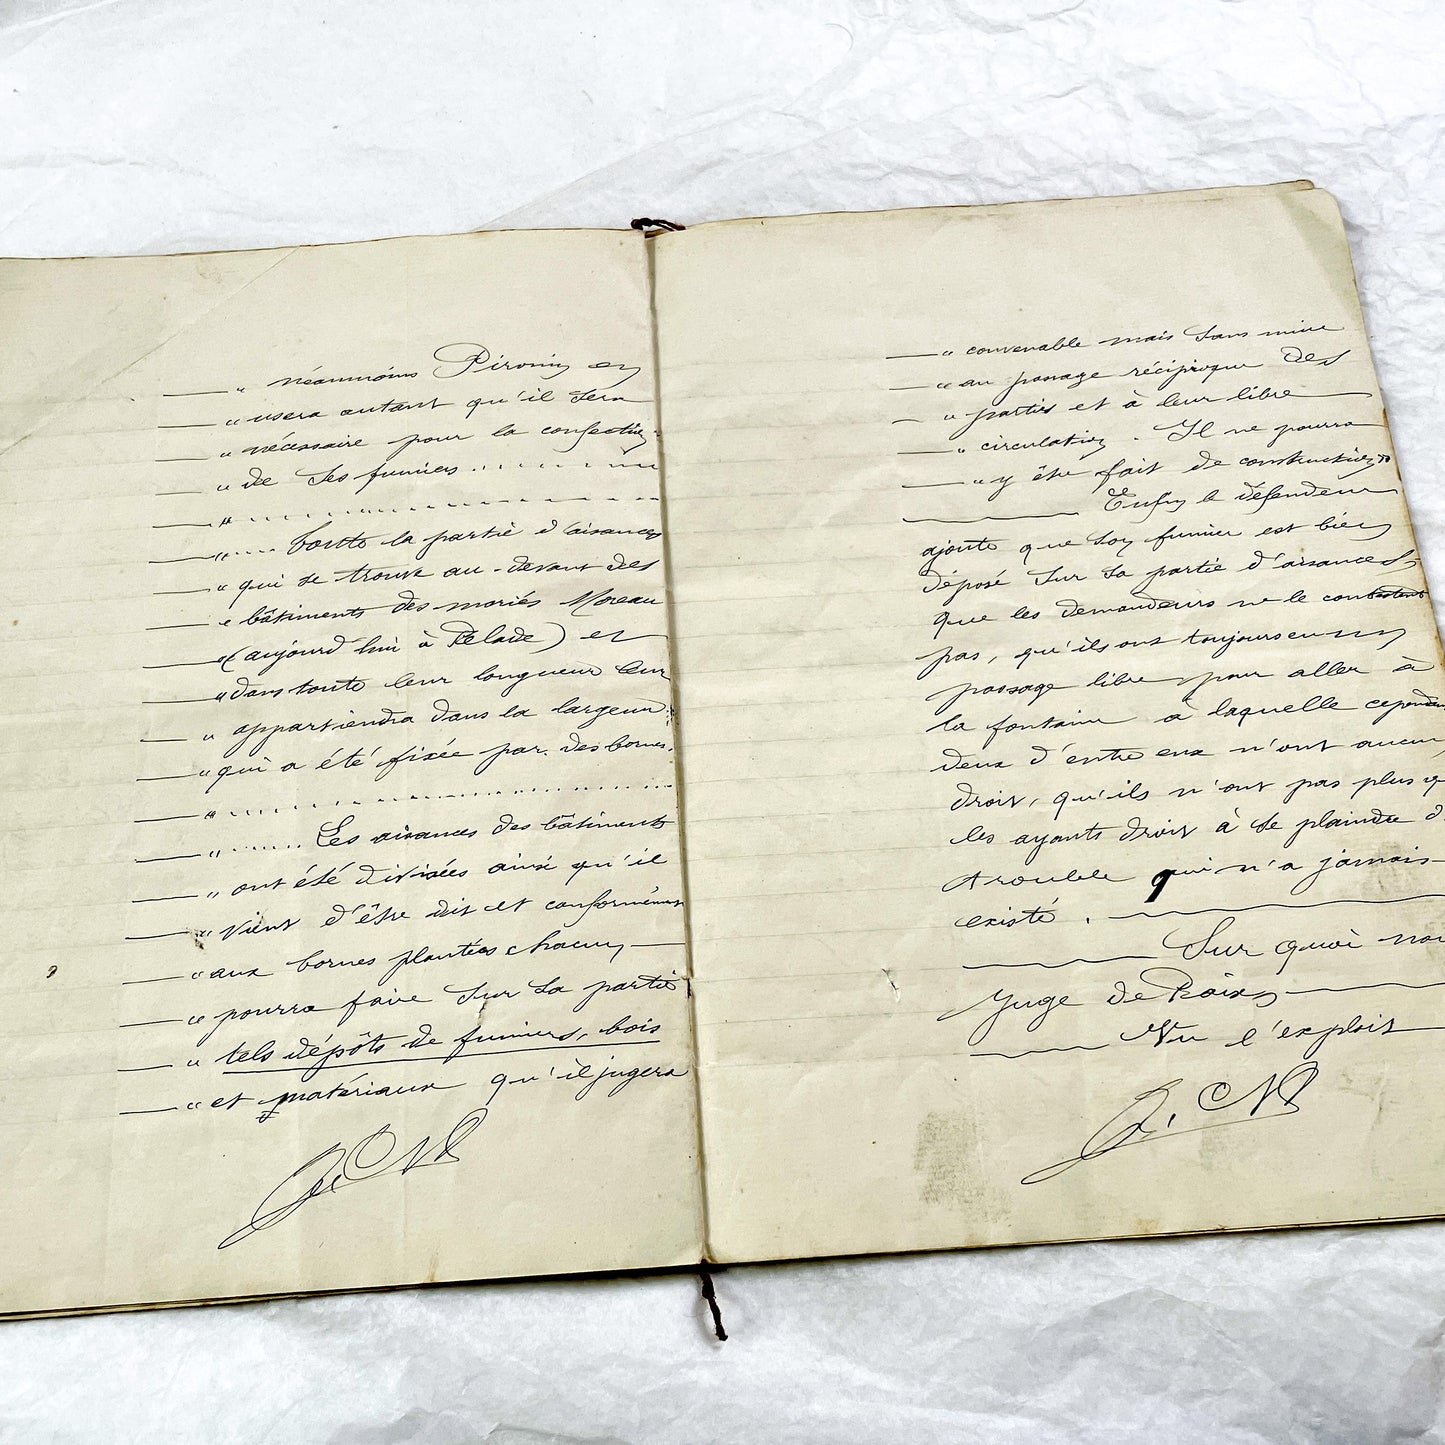 " néanmoins Pironin en
" usera autant qu'il sera
" nécessaire pour la confection
" de ses fumiers ..........
" ....................
" .... Toute la partie d'aisances
" qui se trouve au-devant des
" bâtiments des mariés Moreau
" (aujourd'hui à Pelade) et
" dans toute leur longueur leur
" appartiendra dans la largeur
" qui a été fixée par des bornes.
" ....................
" ...... Les aisances des bâtiments
" ont été divisées ainsi qu'il
" vient d'être dit et conformément
" aux bornes plantées chacun
" pourra faire sur sa partie
" tels dépôts de fumiers, bois
" et matériaux qu'il jugera
" convenable mais sans nuire
" au passage réciproque des
" parties et à leur libre
" circulation. Il ne pourra
" y être fait de constructions
Enfin le défendeur
ajoute que son fumier est bien
déposé sur sa partie d'aisances
que les demandeurs ne le contestent
pas, qu'ils ont toujours eu un
passage libre pour aller à
la fontaine à laquelle
deux d'entre eux n'ont aucun
droit, qu'ils n'ont pas plus
les ayants droit à se plaindre
trouble qui n'a jamais
existé.
Sur quoi
Juge de Paix
Vu l'exploit